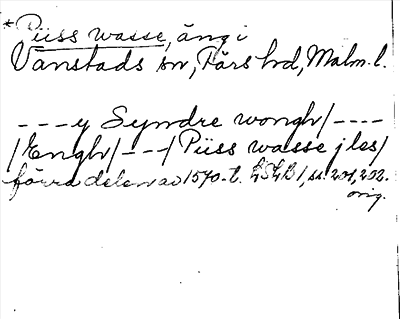 *Püss wasse, äng i
Vanstads sn, Färs hd, Malm. l.
----y Syndre wongh/----
/Engh/---/Püss wasse j les/
förra delen av 1570-t. LSGB 1, ss. 201, 202.
orig.